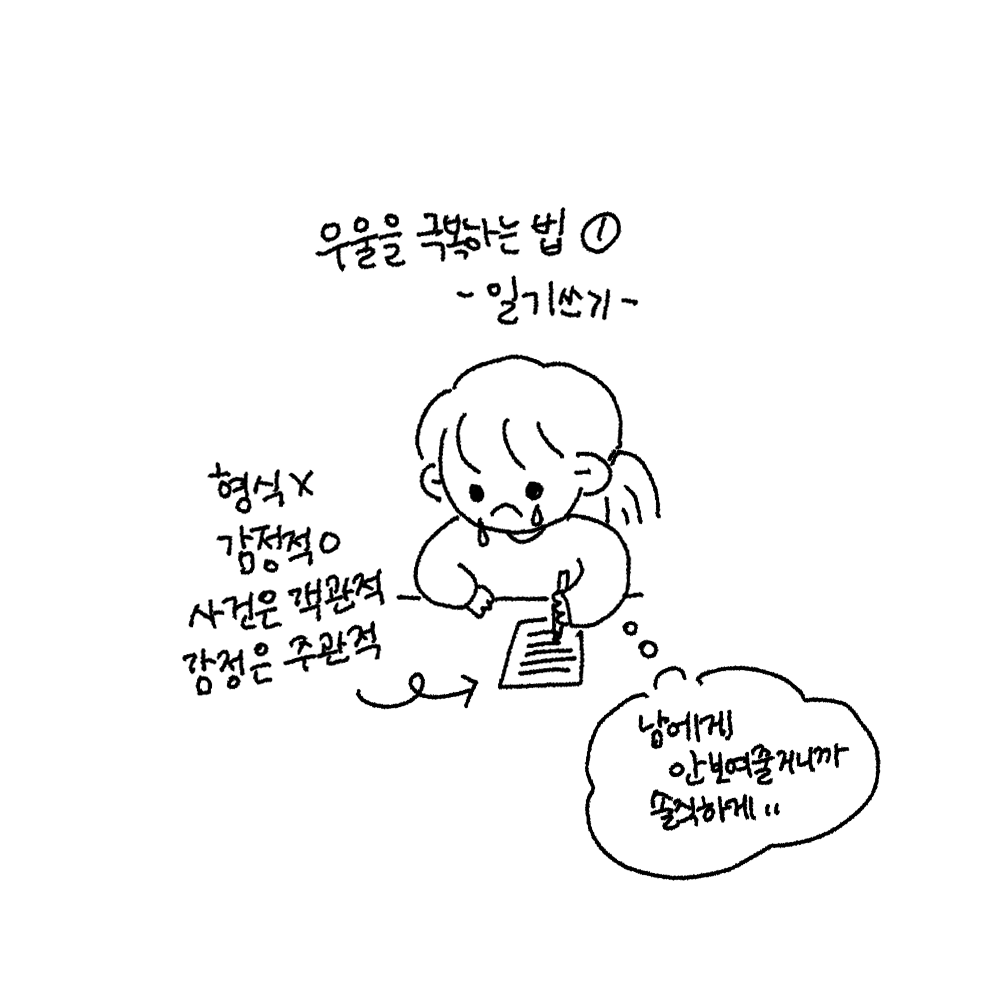 우울을 극복하는 법 ①
- 일기쓰기 -
형식 X
감정적 O
사건은 객관적
감정은 주관적
남에게
안보여줄거니까
솔직하게..